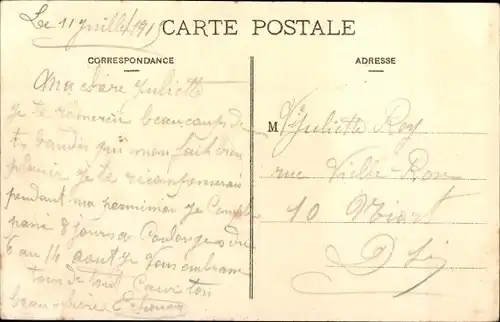 Le 11 Juillet 1915
CARTE POSTALE
CORRESPONDANCE
ADRESSE
Ma chère Juliette
je te remerci beaucoups de
ta qui mon fait bien
plaisir je te réconpenserais
pendant ma permision je compte
passé 8 jours a Coulonges du
6 au 14 aout je vous embrasse
tous de tout cœur ton
beau-frère
M lle Juliette Roy
rue Vielle-Rose
10 Niort
D S